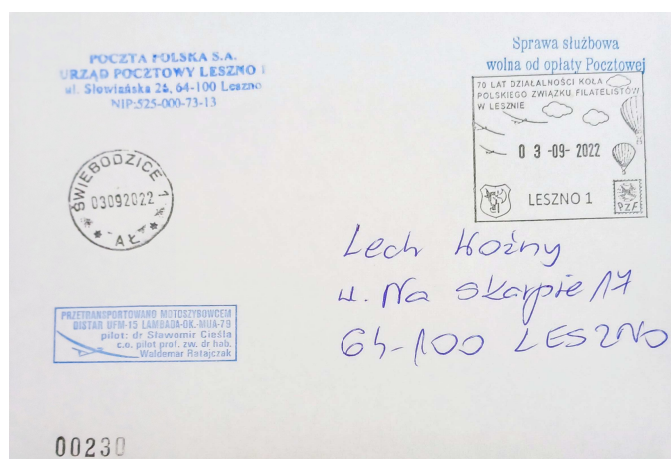 POCZTA POLSKA S.A.
URZĄD POCZTOWY LESZNO 1
ul. Słowiańska 26, 64-100 Leszno
NIP:525-000-73-13
Sprawa służbowa
wolna od opłaty Pocztowej
70 LAT DZIAŁALNOŚCI KOŁA
POLSKIEGO ZWIĄZKU FILATELISTÓW
W LESZNIE
03-09-2022
LESZNO 1
PZF
ŚWIEBODZICE 1
03092022
* * AŁ * *
Lech Woźny
ul. Na Skarpie 17
64-100 LESZNO
PRZETRANSPORTOWANO MOTOSZYBOWCEM
DISTAR UFM-15 LAMBADA-OK.-MUA-79
pilot: dr Sławomir Cieśla
c.o. pilot prof. zw. dr hab.
Waldemar Ratajczak
00230